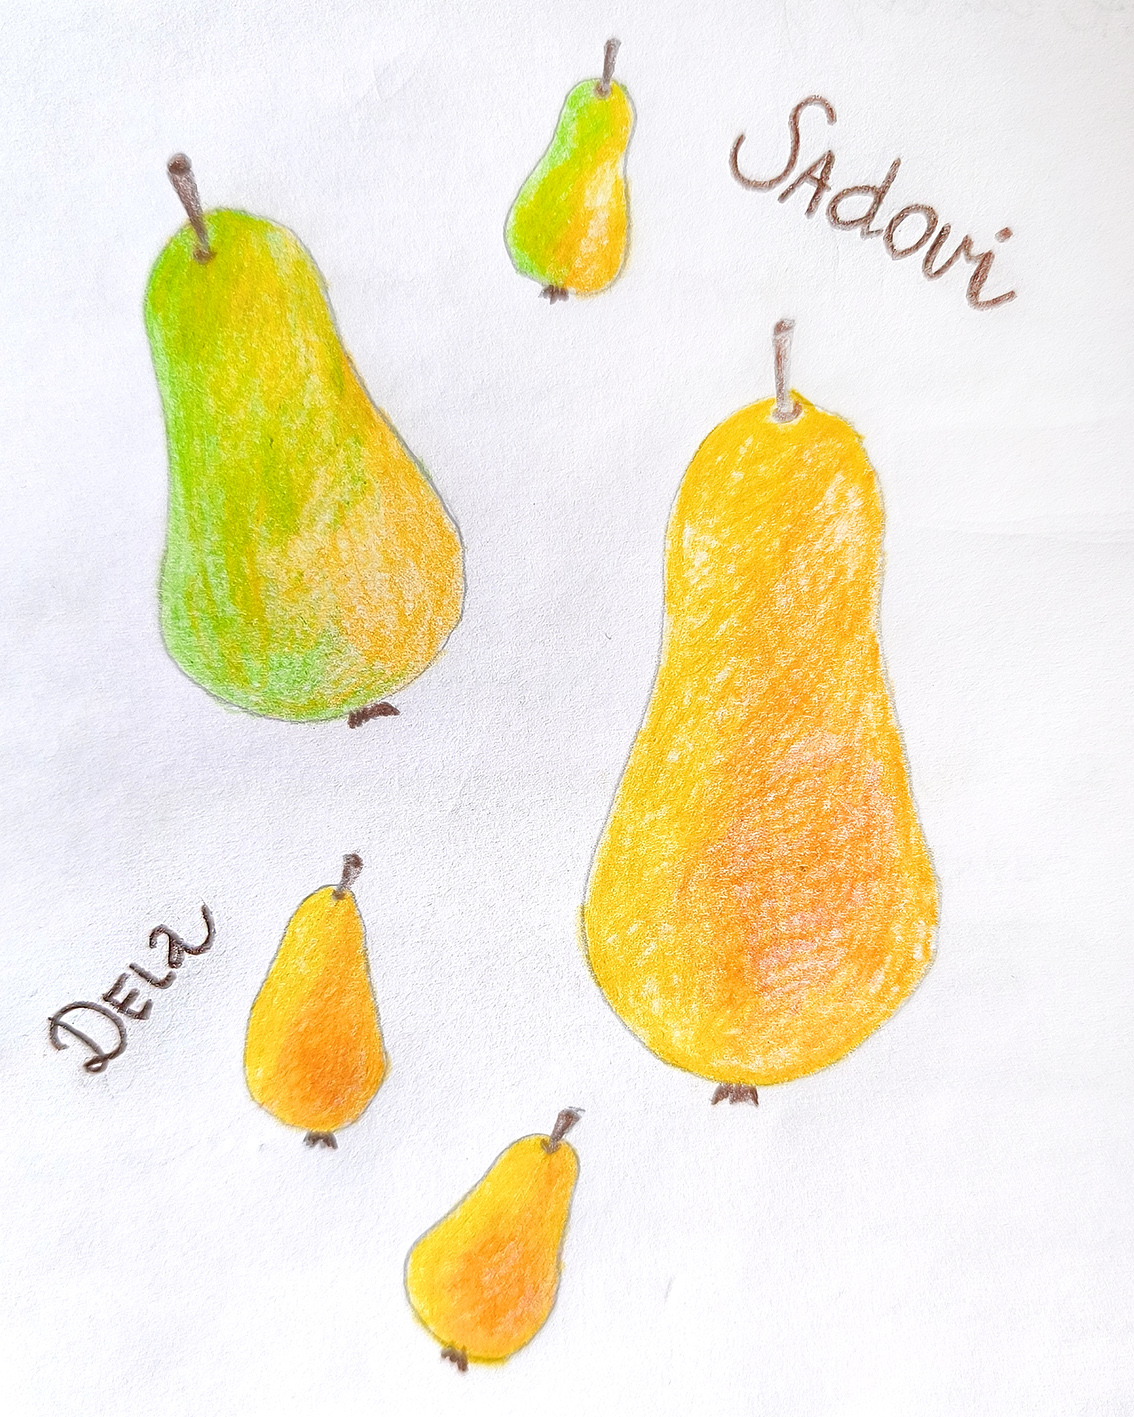 SAdovi
DELa